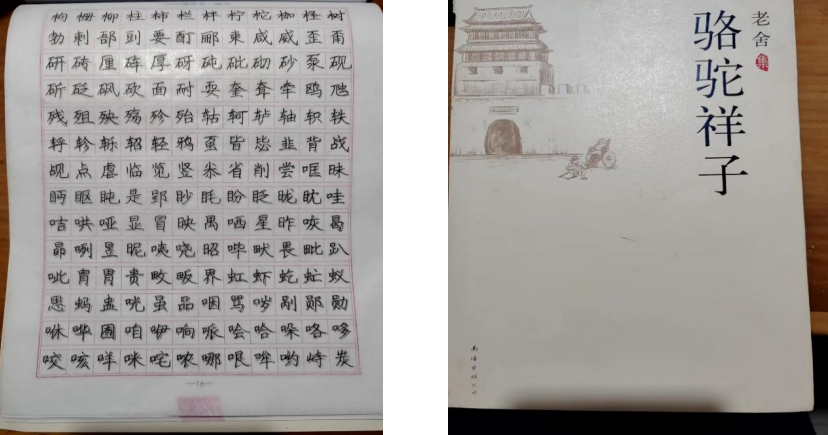 枸栅柳柱柿栏柈柠柁枷柽树
勃剌郚剅要酊郦柬咸威歪甭
研砖厘砗厚砑砘砒砌砂泵砚
斫砭砜砍面耐耍奎耷牵鸥虺
残殂殃殇殄殆轱轲轳轴轵轶
轷轸轹轺轻鸦虿皆毖韭背战
觇点虐临览竖尜省削尝哐昧
眄眍盹是郢眇眊盼眨昽眈哇
咭哄哑显冒映禺哂星昨咴曷
昴咧昱昵咦哓昭哔畎畏毗趴
呲胄胃贵畋畈界虹虾虼虻蚁
思蚂盅咣虽品咽骂哕剐郧勋
咻哗囿咱咿响哌哙哈哚咯哆
咬咳咩咪咤哝哪哏哞哟峙炭
老舍集
骆驼祥子
南海出版公司